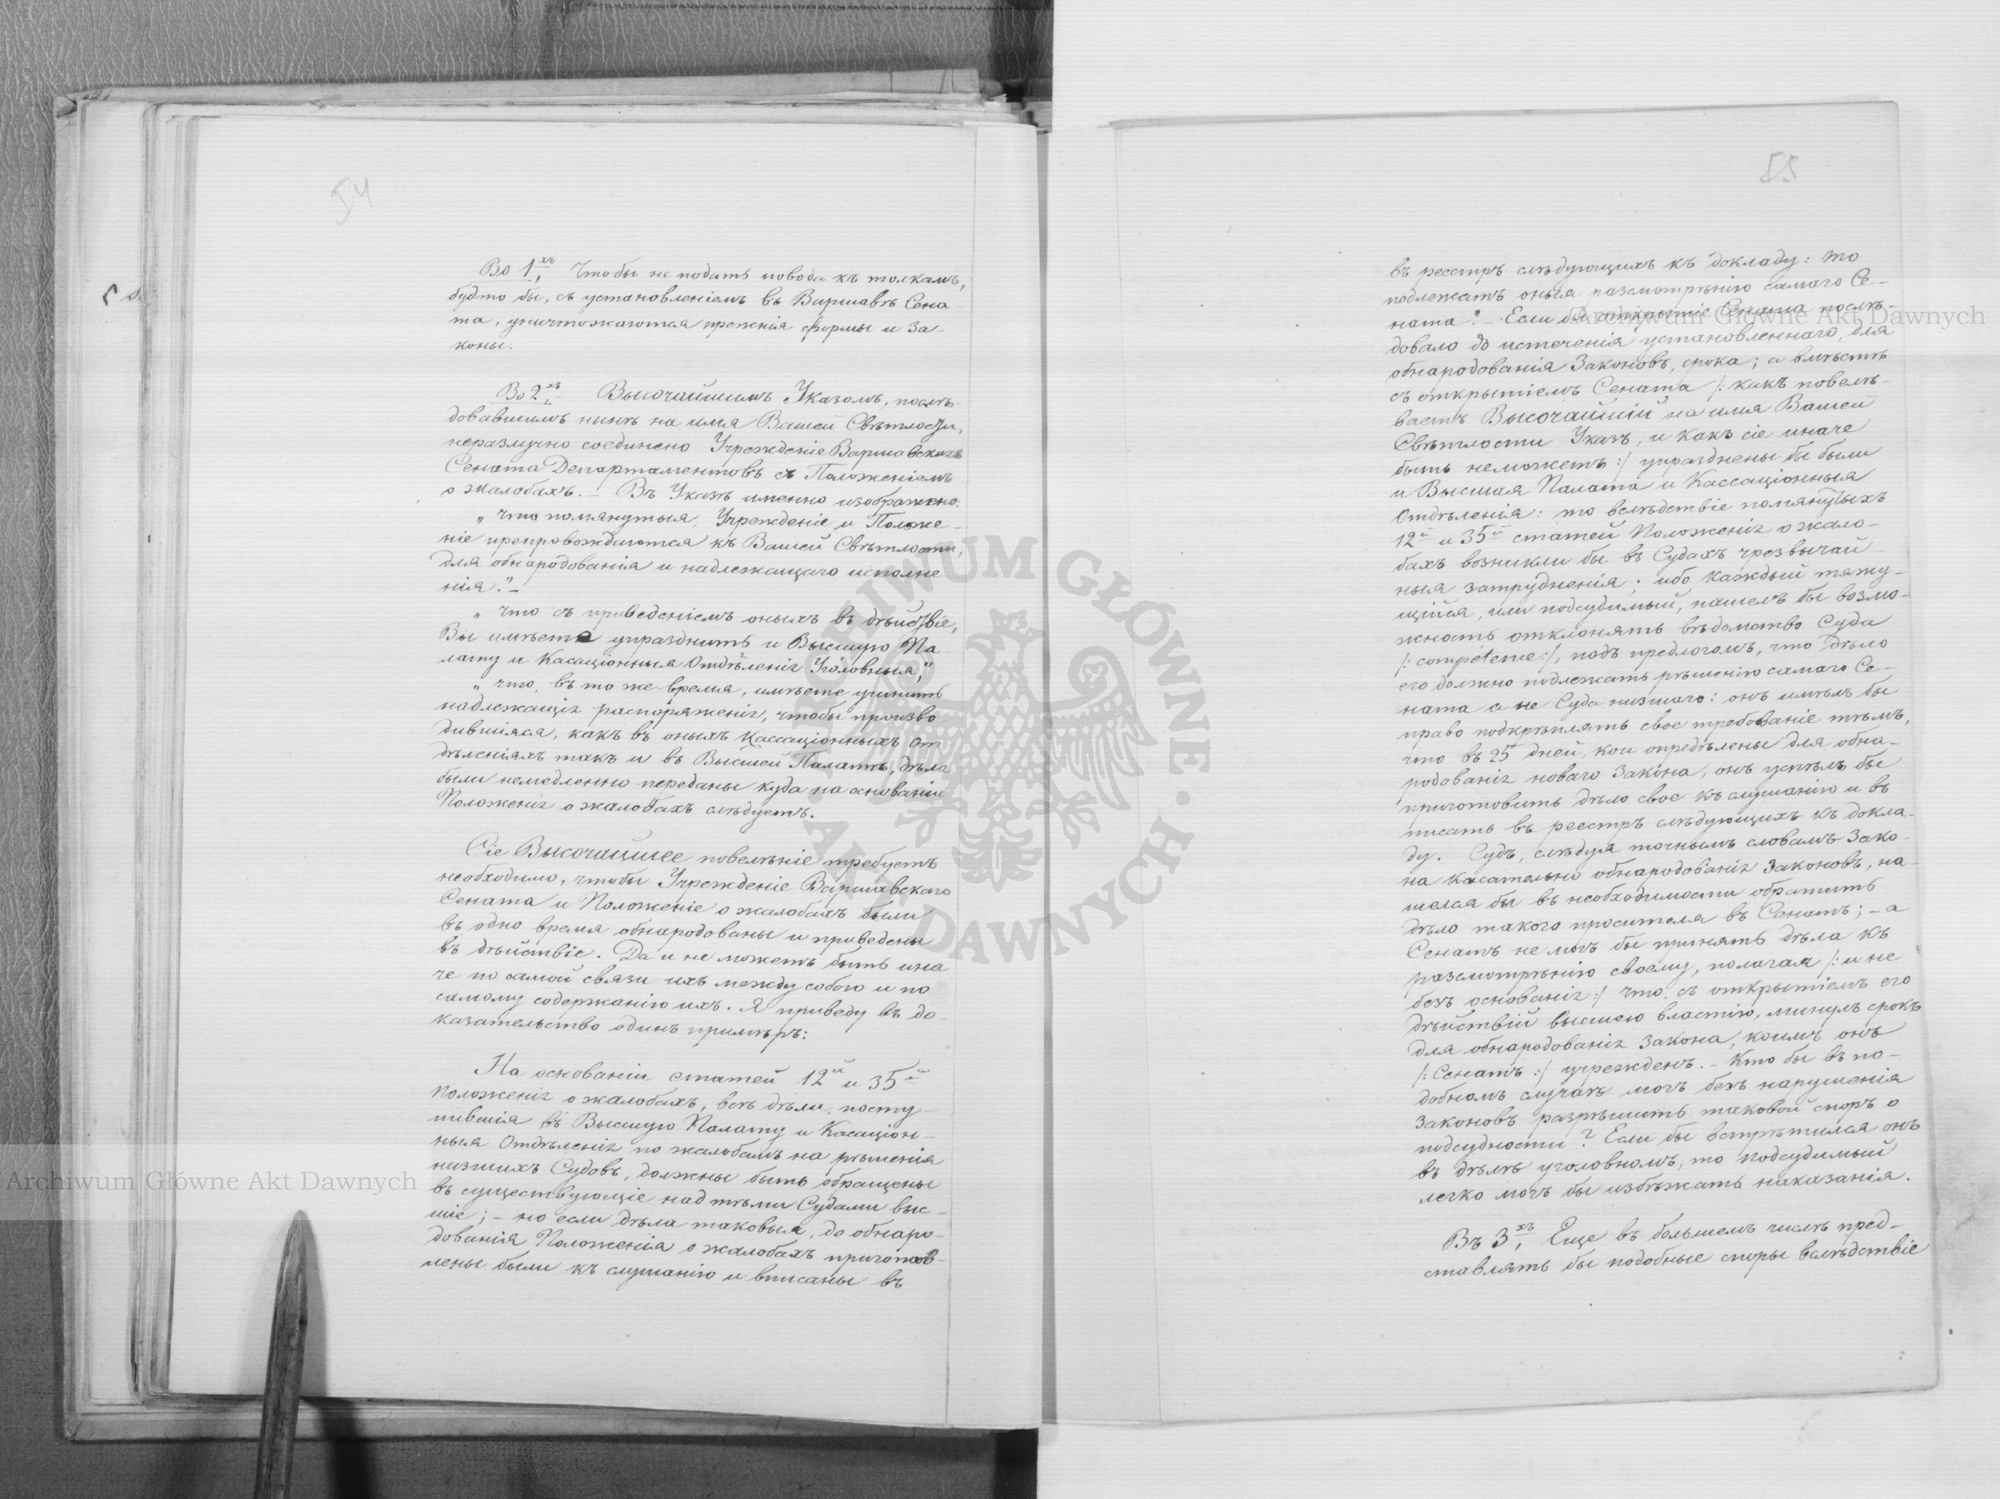 54
Во 1хъ, Чтобы не подать повода къ толкамъ,
будто бы, съ установленіемъ въ Варшавѣ Сена-
та, уничтожаются прежнія формы и за-
коны.
Во 2хъ, Высочайшимъ Указомъ, послѣ-
довавшимъ нынѣ на имя Вашей Свѣтлости,
неразлучно соединено Учрежденіе Варшавскихъ
Сената Департаментовъ съ Положеніемъ
о жалобахъ. – Въ Указѣ именно изображено:
„что помянутыя Учрежденіе и Положе-
ніе препровождаются къ Вашей Свѣтлости,
для обнародованія и надлежащаго исполне-
нія." –
„что съ приведеніемъ оныхъ въ дѣйствіе,
Вы имѣете упразднить и Высшую Па-
лату и Касаціонныя Отдѣленія Уголовныя,"
„что, въ то же время, имѣете учинить
надлежащія распоряженія, чтобы произво-
дившіяся, какъ въ оныхъ Кассаціонныхъ От-
дѣленіяхъ такъ и въ Высшей Палатѣ, дѣла
были немедленно переданы куда на основаніи
Положенія о жалобахъ слѣдуетъ.
Сіе Высочайшее повелѣніе требуетъ
необходимо, чтобы Учрежденіе Варшавскаго
Сената и Положеніе о жалобахъ были
въ одно время обнародованы и приведены
въ дѣйствіе. Да и не можетъ быть ина-
че по самой связи ихъ между собою и по
самому содержанію ихъ. Я приведу въ до-
казательство одинъ примѣръ:
На основаніи статей 12й и 35й
Положенія о жалобахъ, всѣ дѣла, посту-
пившія въ Высшую Палату и Касаціон-
ныя Отдѣленія по жалобамъ на рѣшенія
низшихъ Судовъ, должны быть обращены
въ существующіе надъ тѣми Судами выс-
шіе; – но если дѣла таковыя, до обнаро-
дованія Положенія о жалобахъ приготов-
лены были къ слушанію и вписаны въ
55
въ реестръ слѣдующихъ къ докладу: то
подлежатъ оныя разсмотрѣнію самаго Се-
ната". – Если бы открытіе Сената послѣ-
довало до истеченія установленнаго, для
обнародованія Законовъ, срока; а вмѣстѣ
съ открытіемъ Сената /: какъ повелѣ-
ваетъ Высочайшій на имя Вашей
Свѣтлости Указъ, и какъ сіе иначе
быть неможетъ :/ упразднены бы были
и Высшая Палата и Кассаціонныя
Отдѣленія: то вслѣдствіе помянутыхъ
12й и 35й статей Положенія о жало-
бахъ возникли бы въ Судахъ чрезвычай-
ныя затрудненія; ибо каждый тяжу-
щійся, или подсудимый, нашелъ бы возмо-
жность отклонять вѣдомство Суда
/: compétence :/, подъ предлогомъ, что дѣло
его должно подлежать рѣшенію самаго Се-
ната а не Суда низшаго: онъ имѣлъ бы
право подкрѣплять свое требованіе тѣмъ,
что въ 25 дней, кои опредѣлены для обна-
родованія новаго Закона, онъ успѣлъ бы
приготовить дѣло свое къ слушанію и в-
писать въ реестръ слѣдующихъ къ докла-
ду. Судъ, слѣдуя точнымъ словамъ Зако-
на касательно обнародованія Законовъ, на-
шелся бы въ необходимости обратить
дѣло такого просителя въ Сенатъ; – а
Сенатъ не могъ бы принять дѣла къ
разсмотрѣнію своему, полагая /: и не
безъ основанія :/ что, съ открытіемъ его
дѣйствій высшею властію, минулъ срокъ
для обнародованія Закона, коимъ онъ
/: Сенатъ :/ учрежденъ. – Кто бы въ по-
добномъ случаѣ могъ безъ нарушенія
Законовъ разрѣшить таковой споръ о
подсудности? Если бы встрѣтился онъ
въ дѣлѣ уголовномъ, то подсудимый
легко могъ бы избѣжать наказанія.
Въ 3хъ, Еще въ большемъ числѣ пред-
ставлять бы подобные споры вслѣдствіе
Archiwum Główne Akt Dawnych
Archiwum Główne Akt Dawnych
ARCHIWUM GŁÓWNE · AKT DAWNYCH ·